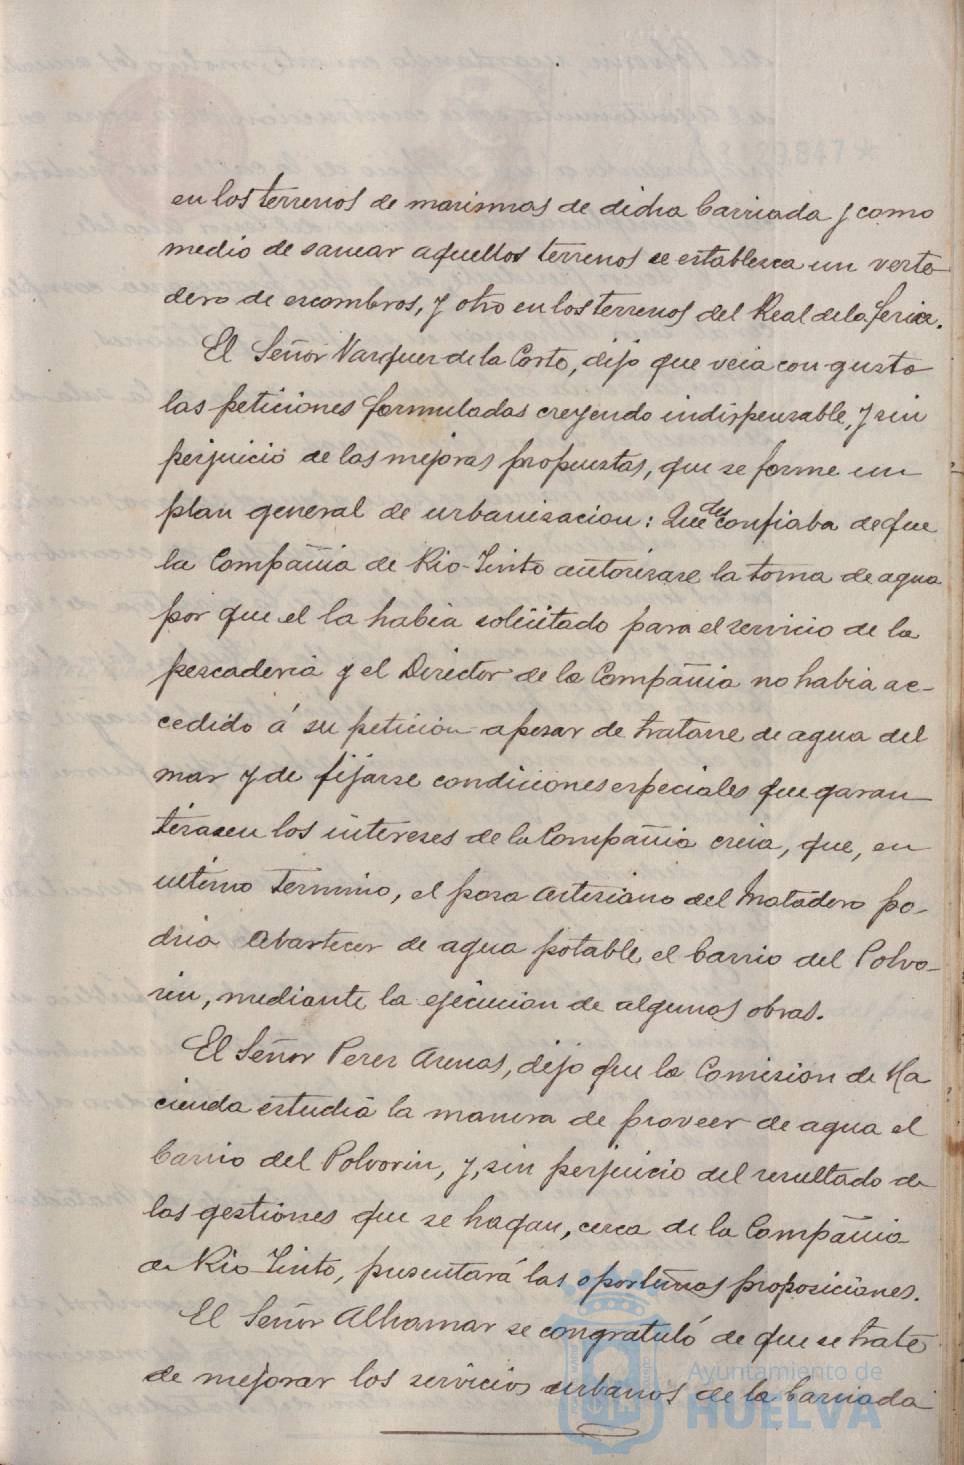 en los terrenos de marismas de dicha barriada y como
medio de sanear aquellos terrenos se establezca un verte
dero de escombros, y otro en los terrenos del Real de la feria.
El Señor Vazquez de la Corte, dijo que veia con gusto
las peticiones formuladas creyendo indispensable, y sin
perjuicio de las mejoras propuestas, que se forme un
plan general de urbanizacion: Que desconfiaba de que
la Compañia de Rio-Tinto autorizase la toma de agua
por que el la habia solicitado para el servicio de la
pescaderia y el Director de la Compañia no habia ac-
cedido á su peticion apesar de tratarse de agua del
mar y de fijarse condiciones especiales que garan
tizasen los intereses de la Compañia creia, que, en
ultimo termino, el pozo artesiano del Matadero po-
dria abastecer de agua potable el barrio del Polvo-
rin, mediante la ejecucion de algunas obras.
El Señor Perez Arenas, dijo que la Comision de Ha
cienda estudia la manera de proveer de agua el
barrio del Polvorin, y, sin perjuicio del resultado de
las gestiones que se hagan, cerca de la Compañia
de Rio Tinto, presentará las oportunas proposiciones.
El Señor Alhamar se congratuló de que se trate
de mejorar los servicios urbanos de la barriada
Ayuntamiento de
HUELVA